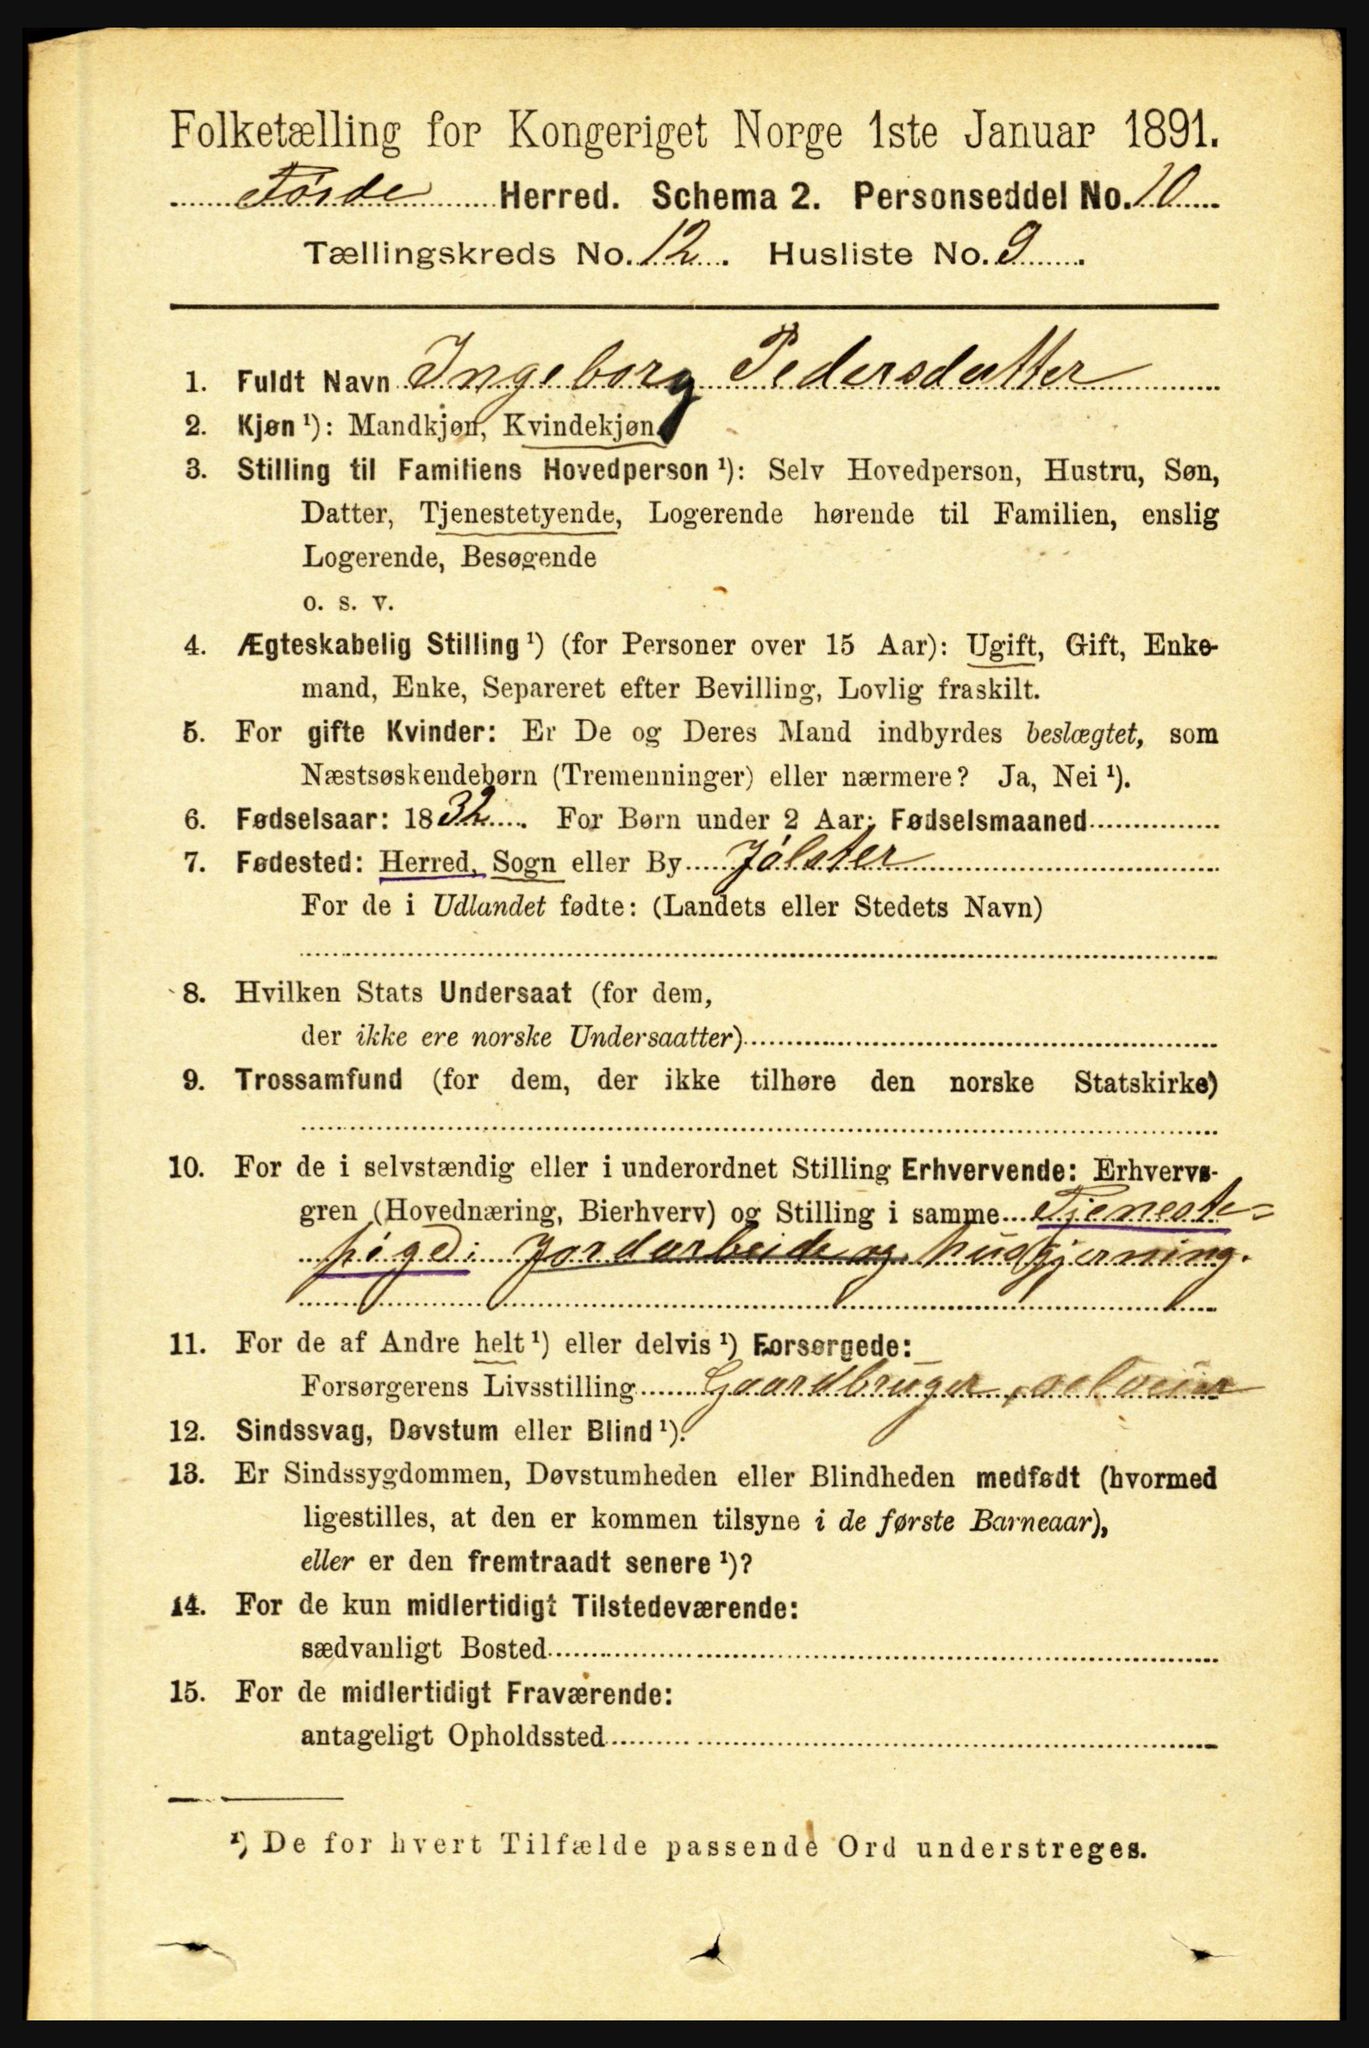 Folketælling for Kongeriget Norge 1ste Januar 1891.
Førde Herred. Schema 2. Personseddel No. 10
Tællingskreds No. 12. Husliste No. 9.
1. Fuldt Navn Ingeborg Pedersdatter
2. Kjøn¹): Mandkjøn, Kvindekjøn
3. Stilling til Familiens Hovedperson¹): Selv Hovedperson, Hustru, Søn,
Datter, Tjenestetyende, Logerende hørende til Familien, enslig
Logerende, Besøgende
o. s. v.
4. Ægteskabelig Stilling¹) (for Personer over 15 Aar): Ugift, Gift, Enke-
mand, Enke, Separeret efter Bevilling, Lovlig fraskilt.
5. For gifte Kvinder: Er De og Deres Mand indbyrdes beslægtet, som
Næstsøskendebørn (Tremenninger) eller nærmere? Ja, Nei¹).
6. Fødselsaar: 1832. For Børn under 2 Aar: Fødselsmaaned
7. Fødested: Herred, Sogn eller By Jølster
For de i Udlandet fødte: (Landets eller Stedets Navn)
8. Hvilken Stats Undersaat (for dem,
der ikke ere norske Undersaatter)
9. Trossamfund (for dem, der ikke tilhøre den norske Statskirke)
10. For de i selvstændig eller i underordnet Stilling Erhvervende: Erhvervs-
gren (Hovednæring, Bierhverv) og Stilling i samme Tjeneste-
pige: Jordarbeide og husgjerning.
11. For de af Andre helt¹) eller delvis¹) Forsørgede:
Forsørgerens Livsstilling Gaardbruger, selveier
12. Sindssvag, Døvstum eller Blind¹).
13. Er Sindssygdommen, Døvstumheden eller Blindheden medfødt (hvormed
ligestilles, at den er kommen tilsyne i de første Barneaar),
eller er den fremtraadt senere¹)?
14. For de kun midlertidigt Tilstedeværende:
sædvanligt Bosted
15. For de midlertidigt Fraværende:
antageligt Opholdssted
¹) De for hvert Tilfælde passende Ord understreges.